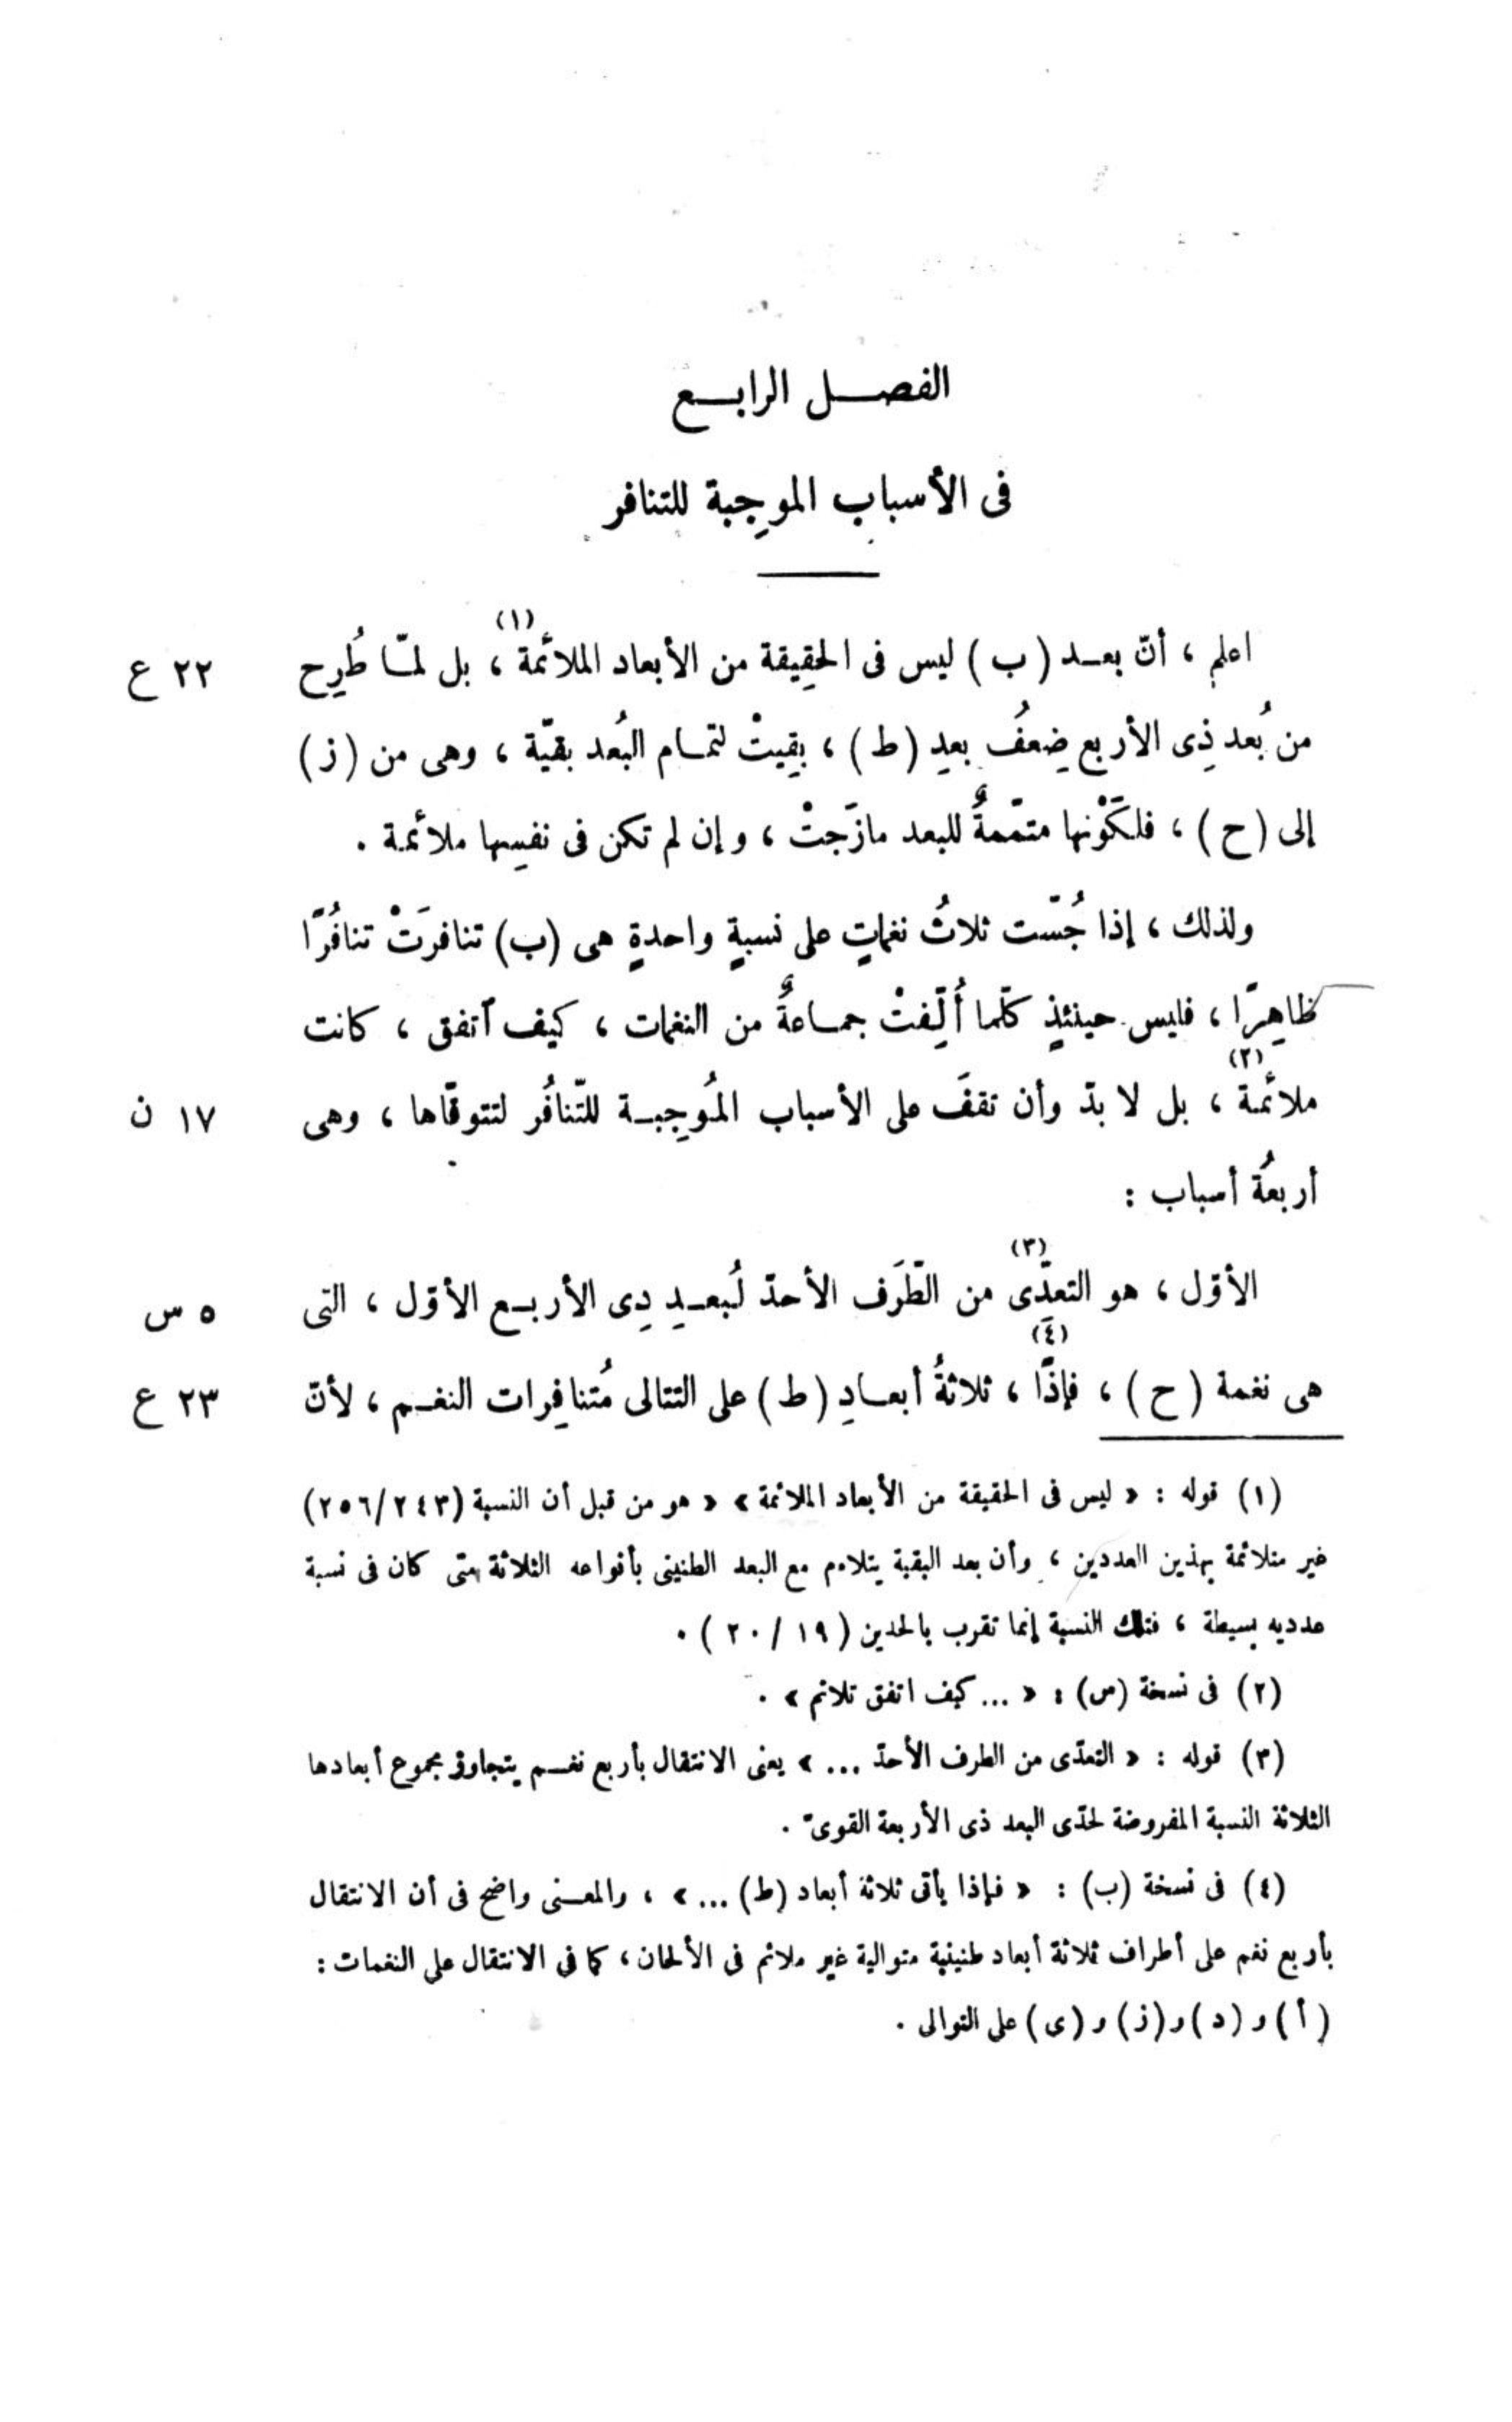 الفصل الرابع
فى الأسباب الموجِبة للتنافر
اعلم ، أنّ بعد (ب) ليس فى الحقِيقة من الأبعاد الملائمة (١) ، بل لمّا طُرِح ٢٢ ع
من بُعد ذِى الأربع ضِعفُ بعدِ (ط) ، بقِيتْ لتمام البُعد بقيّة ، وهى من (ز)
إلى (ح) ، فلكَوْنها متمّمةٌ للبعد مازَجتْ ، وإن لم تكن فى نفسِها ملائمة .
ولذلك ، إذا جُسّت ثلاثُ نغماتٍ على نسبةٍ واحدةٍ هى (ب) تنافرَتْ تنافُرًا
ظاهِرًا ، فليس حينئذٍ كلّما أُلّفتْ جماعةٌ من النغمات ، كيف اتفق ، كانت
ملائمة (٢) ، بل لا بدّ وأن تقفَ على الأسباب المُوجِبة للتّنافُر لتتوقّاها ، وهى ١٧ ن
أربعةُ أسباب :
الأوّل ، هو التعدّى (٣) من الطّرَف الأحدّ لبُعدِ ذِى الأربع الأوّل ، التى ٥ س
هى نغمة (ح) ، فإذًا (٤) ، ثلاثةُ أبعادِ (ط) على التتالى مُتنافِرات النغم ، لأنّ ٢٣ ع
(١) قوله : « ليس فى الحقيقة من الأبعاد الملائمة » « هو من قبل أن النسبة (٢٥٦/٢٤٣)
غير متلائمة بهذين العددين ، وأن بعد البقية يتلاءم مع البعد الطنينى بأنواعه الثلاثة متى كان فى نسبة
عدديه بسيطة ، فتلك النسبة إنما تقرب بالحدين (١٩ / ٢٠) .
(٢) فى نسخة (س) : « ... كيف اتفق تلائم » .
(٣) قوله : « التعدّى من الطرف الأحدّ ... » يعنى الانتقال بأربع نغم يتجاوز مجموع أبعادها
الثلاثة النسبة المفروضة لحدّى البعد ذى الأربعة القوىّ .
(٤) فى نسخة (ب) : « فإذا يأتى ثلاثة أبعاد (ط) ... » ، والمعنى واضح فى أن الانتقال
بأربع نغم على أطراف ثلاثة أبعاد طنينية متوالية غير ملائم فى الألحان ، كما فى الانتقال على النغمات :
(أ) و (د) و (ز) و (ى) على التوالى .